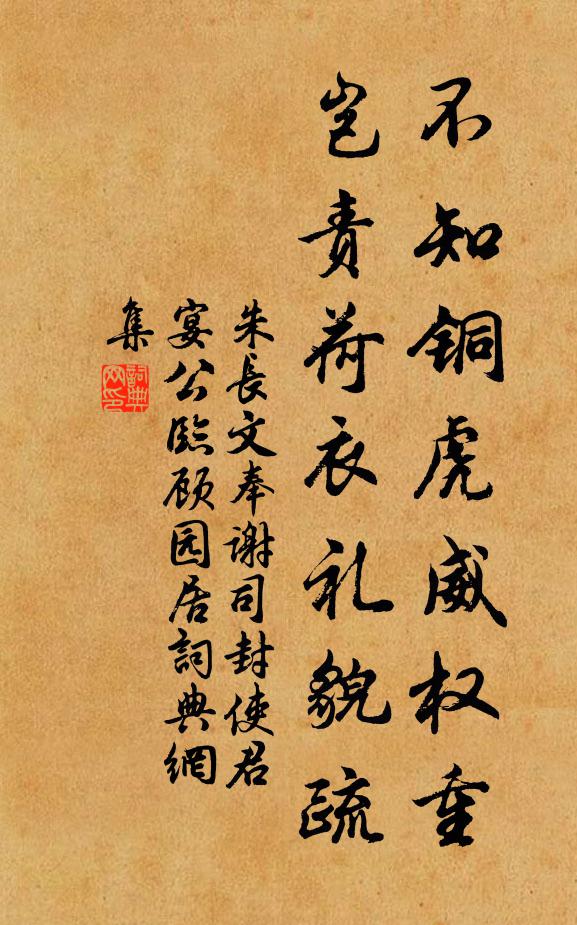 不知铜虎威权重
岂责荷衣礼貌疏
朱長文奉谢司封使君
宴公臨顾园居詞典網
集
詞典
网印